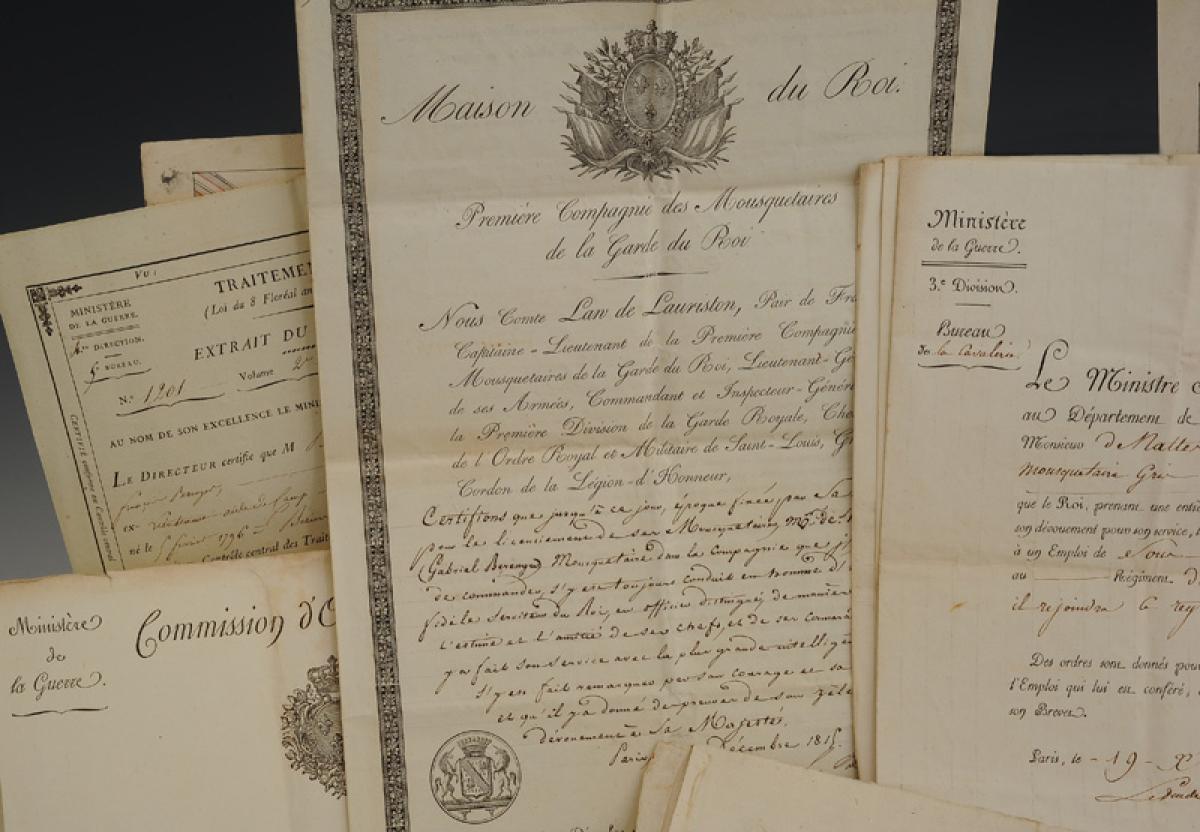 Maison du Roi.
Première Compagnie des Mousquetaires
de la Garde du Roi
Nous Comte Law de Lauriston, Pair de Fra
Capitaine-Lieutenant de la Première Compagnie
Mousquetaires de la Garde du Roi, Lieutenant-Gé
de ses Armées, Commandant et Inspecteur-Généra
la Première Division de la Garde Royale, Che
de l'Ordre Royal et Militaire de Saint-Louis, Gr
Cordon de la Légion-d'Honneur,
Certifions que jusqu'à ce jour, époque fixée par Sa
pour le licenciement de ses Mousquetaires, Mr. de
(Gabriel Berenger) Mousquetaire dans la Compagnie que
de commander, s'y est toujours conduit en homme d'
fidèle serviteur du Roi, en officier distingué, de manière
l'estime et l'amitié de ses chefs, et de ses camara
y a fait son service avec la plus grande intelligen
s'y est fait remarquer par son courage et sa
et qu'il y a donné des preuves de son zèle
dévouement à Sa Majesté.
Paris, Décembre 1815.
Vu:
MINISTÈRE
DE LA GUERRE.
DIRECTION.
BUREAU.
TRAITEMEN
(Loi du 8 Floréal an
EXTRAIT DU
N.° 1201 Volume 2
AU NOM DE SON EXCELLENCE LE MINI
LE DIRECTEUR certifie que M
ex- Lieutenant aide de Camp
né le 5 février 1796
Contrôle central des Trait
CERTIFIÉ conforme au Contrôle central
Ministère
de
la Guerre.
Commission d'O
Ministère
de la Guerre.
3.e Division.
Bureau
de la Cavalerie
Le Ministre
au Département de
Monsieur de Malle
mousquetaire Gris
que le Roi, prenant une entiè
son dévouement pour son service,
à un Emploi de Sous
au Régiment d
il rejoindra le reg
Des ordres sont donnés pour
l'Emploi qui lui est conféré,
son Brevet.
Paris, le 19 X